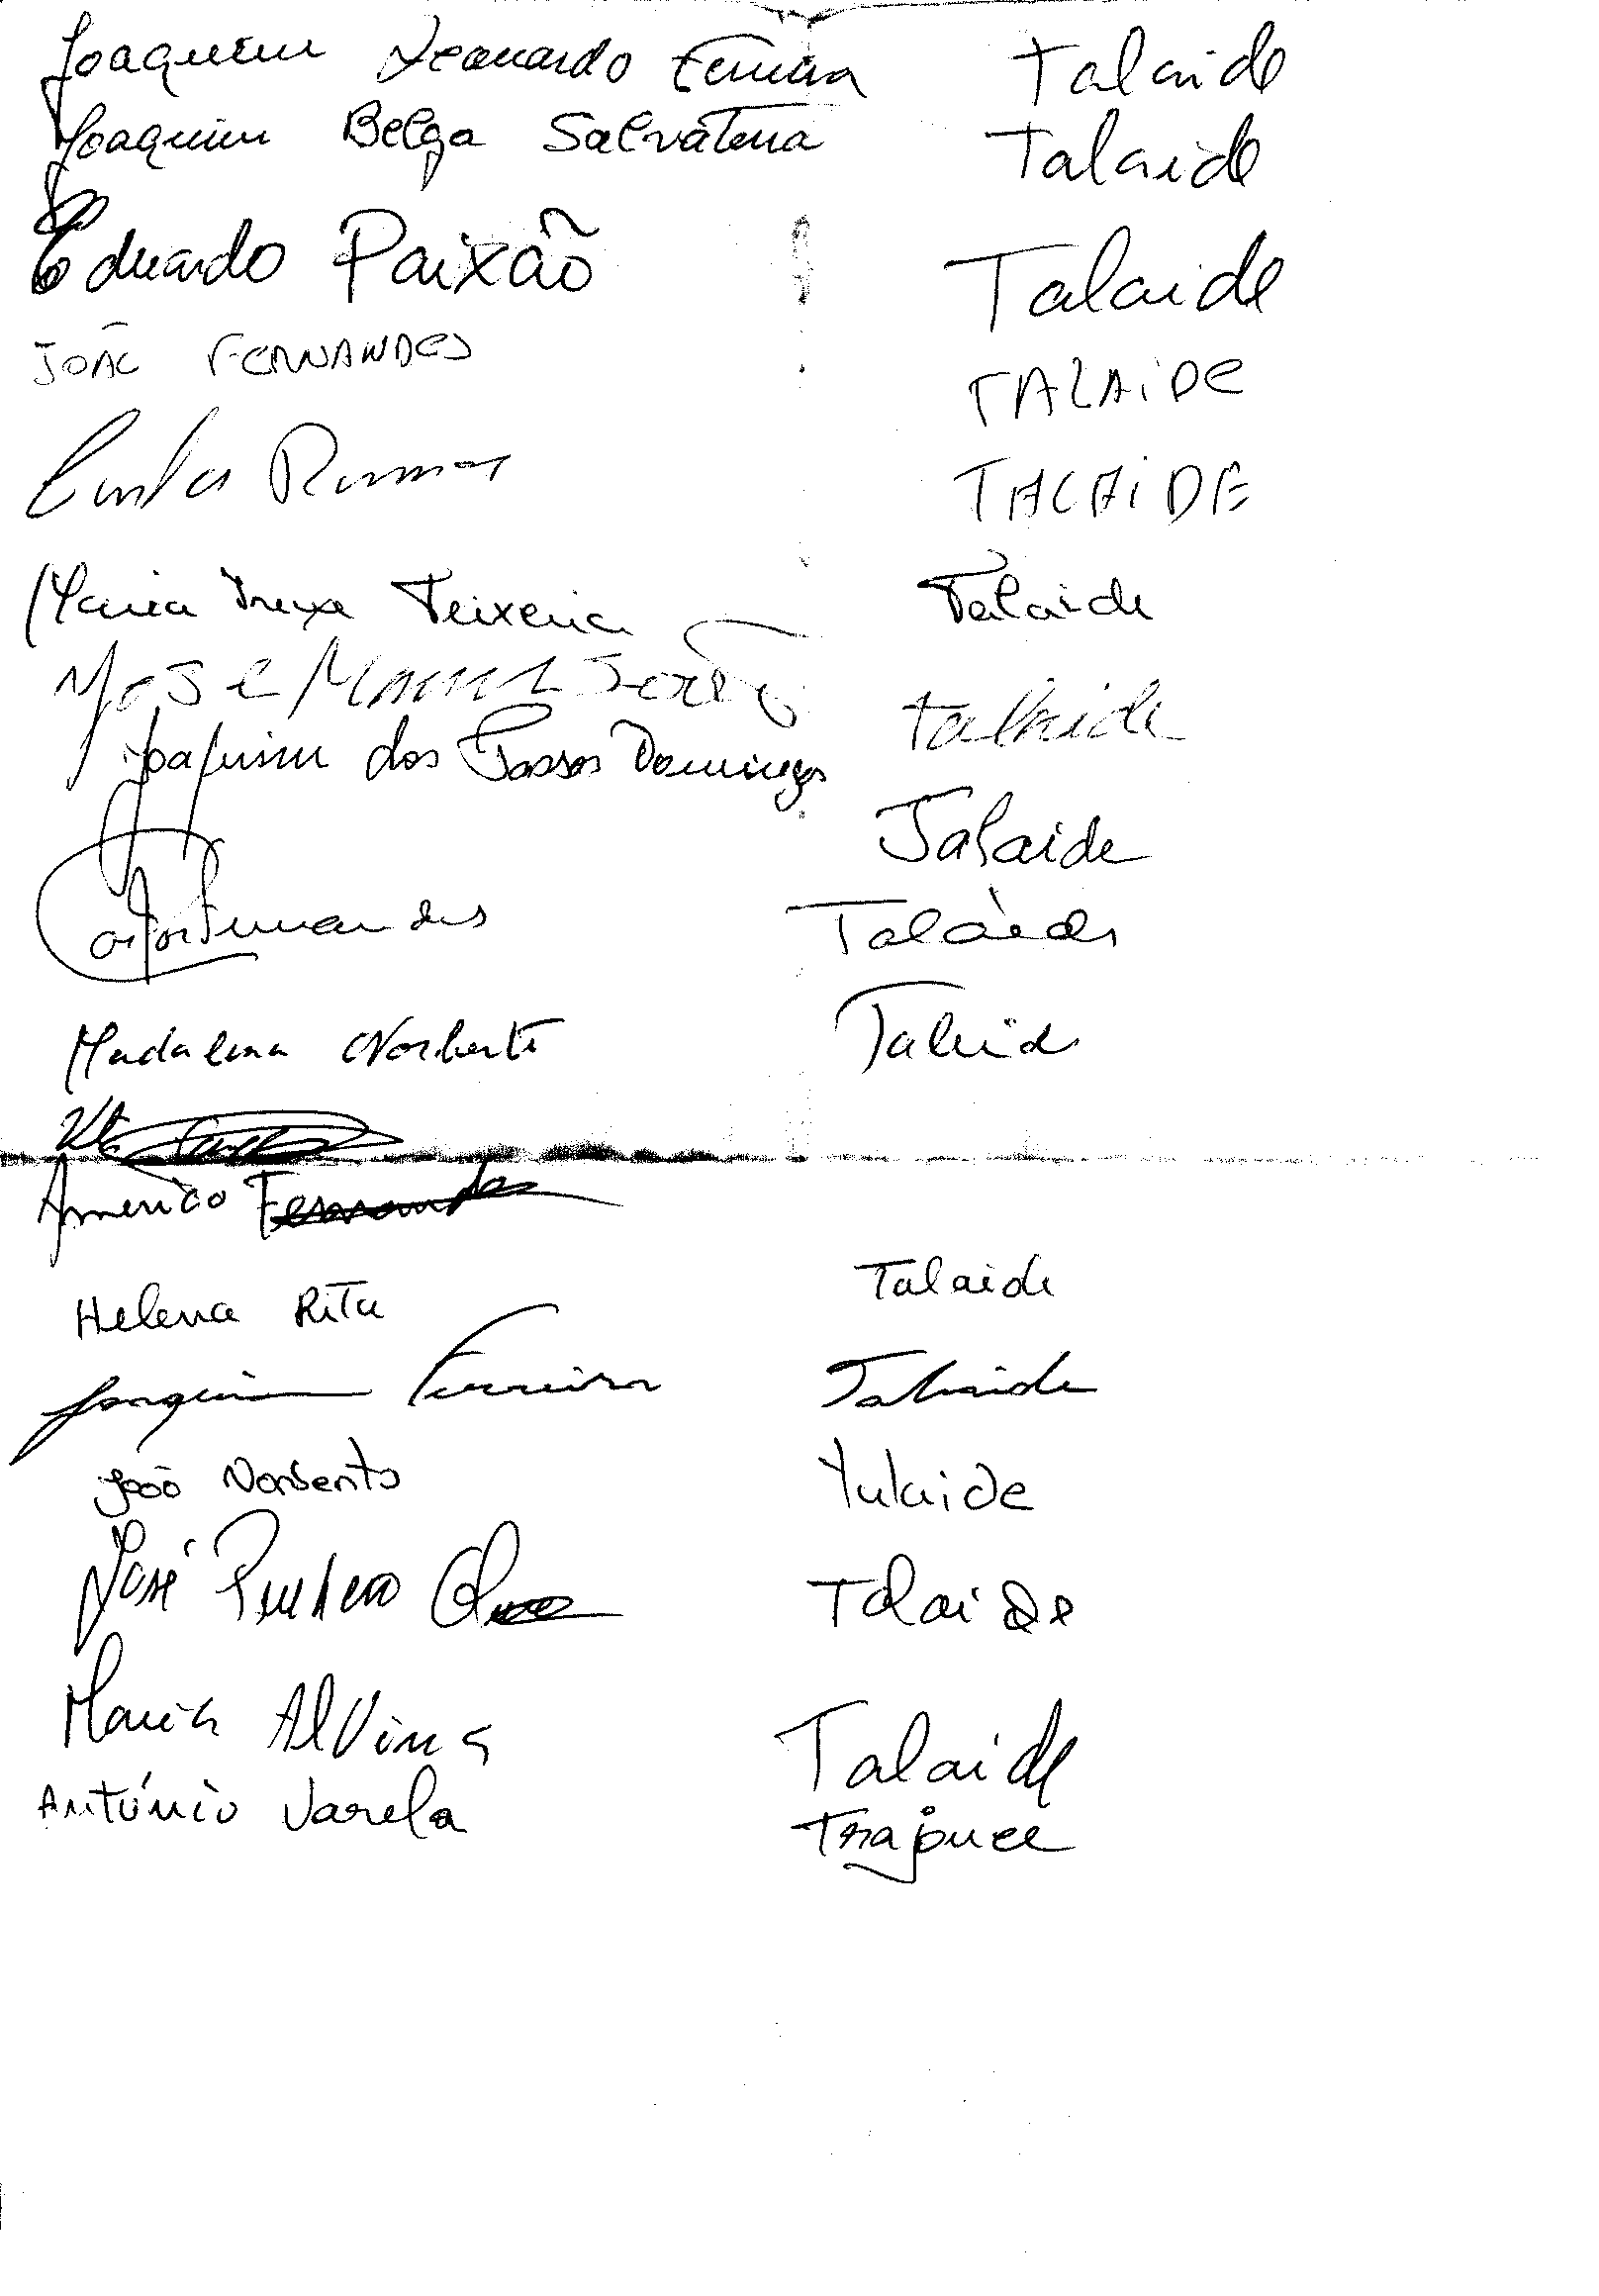 Joaquim Leonardo Ferreira Talaide
Joaquim Belga Salvaterra Talaide
Eduardo Paixão Talaide
JOÃO FERNANDES TALAIDE
Carlos Ramos TALAIDE
Maria Teixeira Talaide
José Manuel talaide
Joaquim dos Passos Domingos Talaide
Fernandes Talaide
Madalena Norberto Talaide
Américo Fernandes
Helena Rita Talaide
Joaquim Ferreira Talaide
João Norberto Talaide
José Talaide
Maria Alvina Talaide
António Varela Trajouce